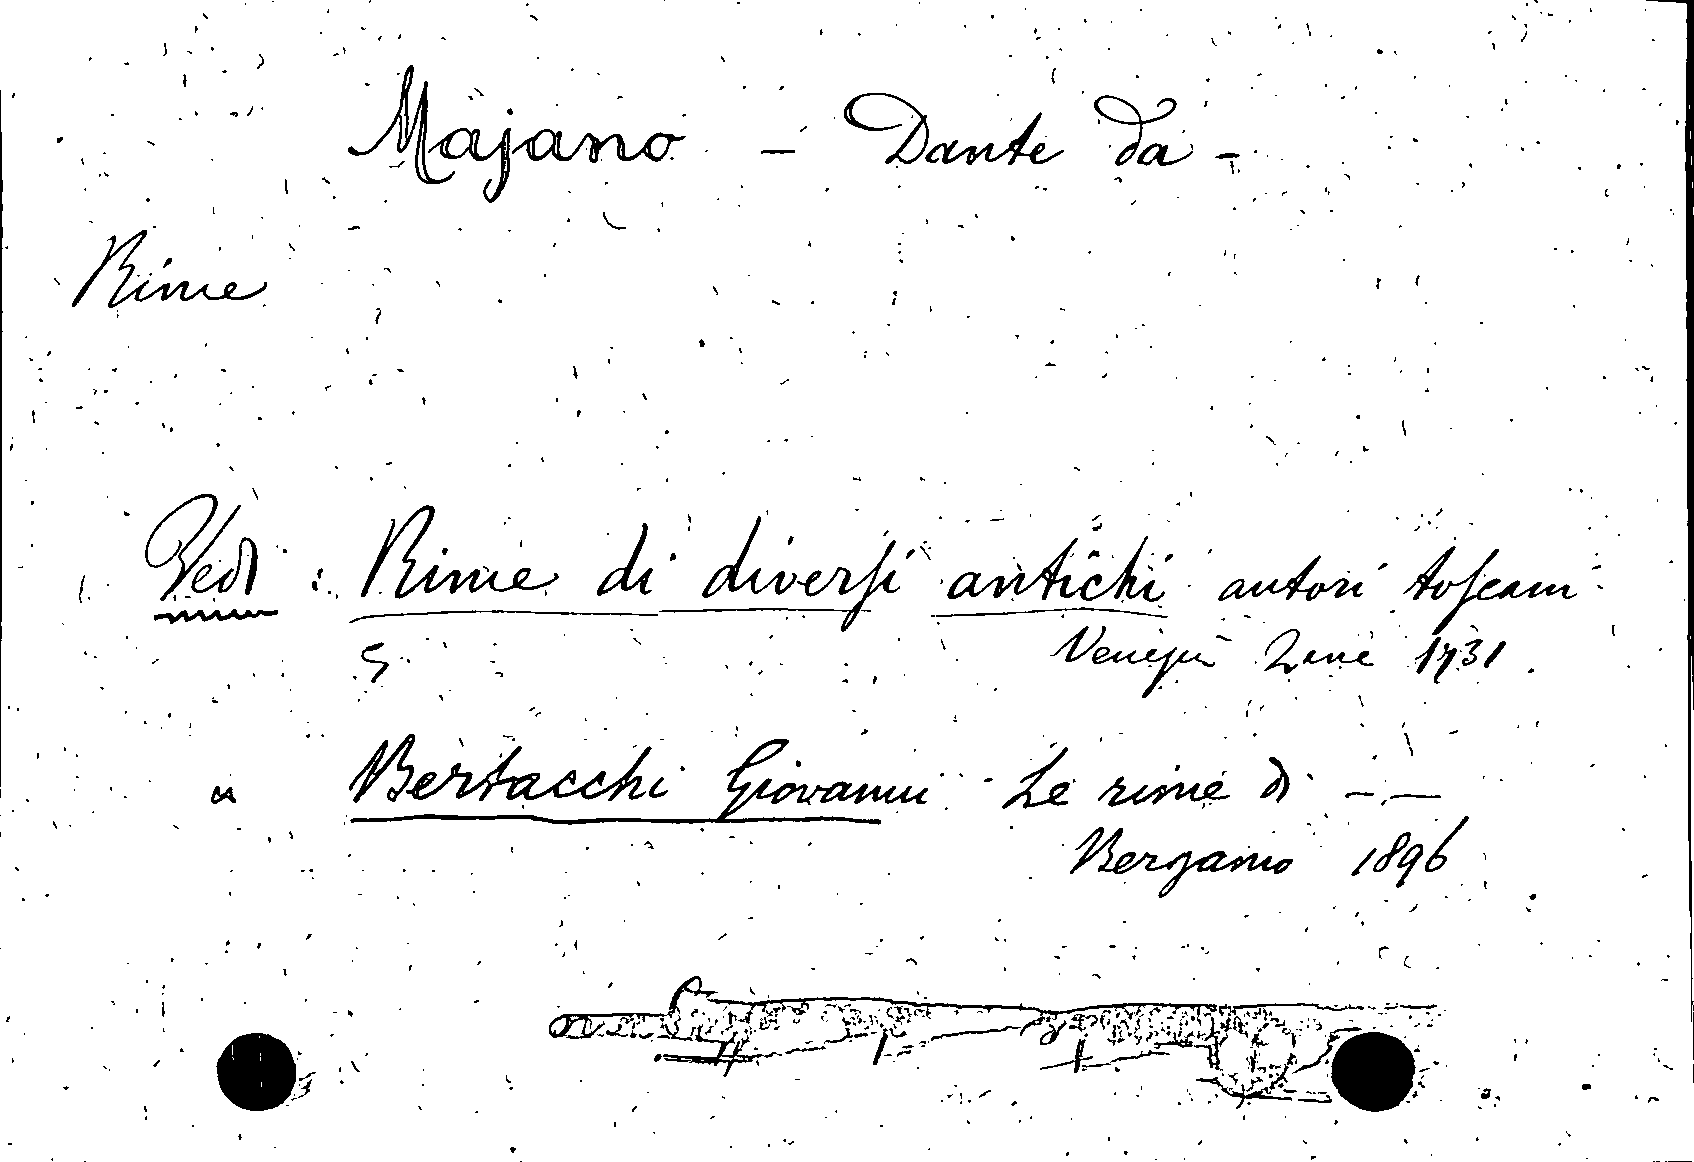 Majano – Dante da –
Rime
Vedi : Rime di diversi antichi autori toscani
Venezia Zane 1731.
" Bertacchi Giovanni - Le rime di — —
Bergamo 1896